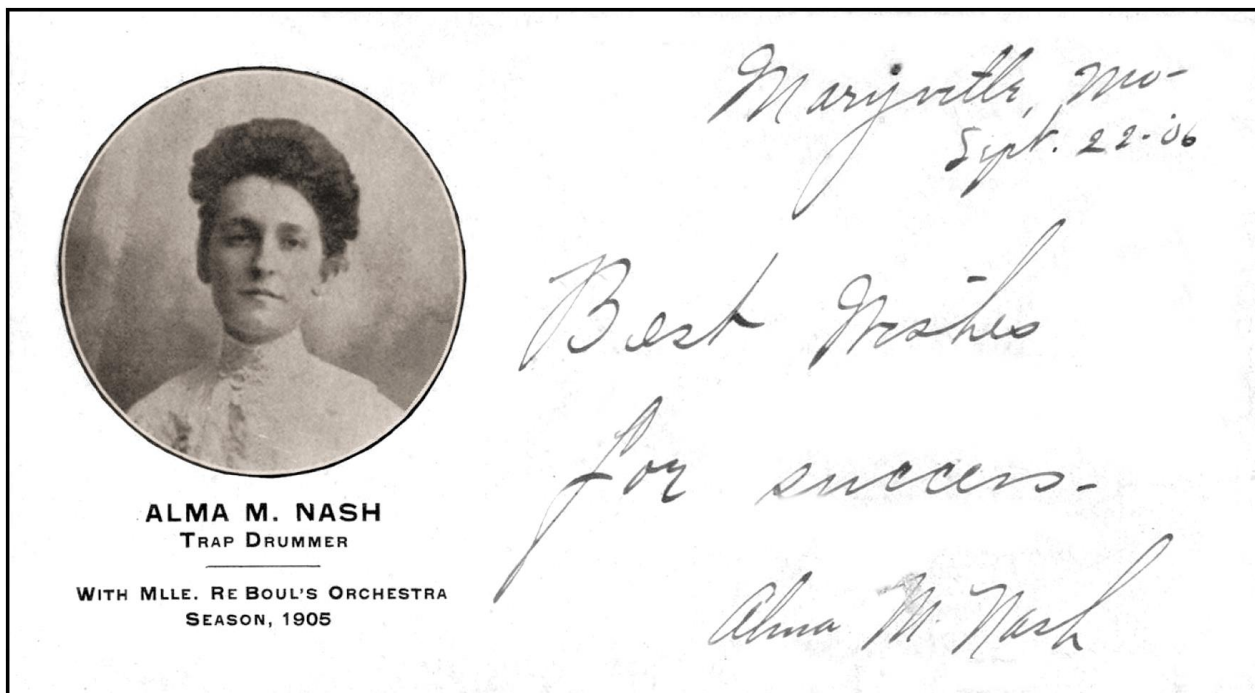 ALMA M. NASH
TRAP DRUMMER
WITH MLLE. RE BOUL'S ORCHESTRA
SEASON, 1905
Maryville, Mo-
Sept. 22-'06
Best Wishes
for success-
Alma M. Nash